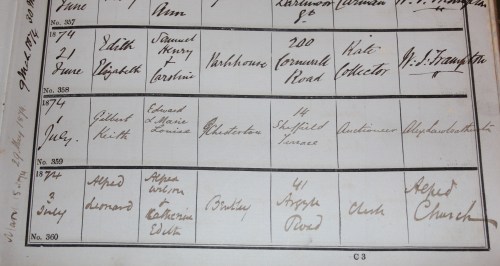 June
Ann
Dartmoor
St
Carman
No. 357
1874
21
June
Edith
Elizabeth
Samuel
Henry
&
Caroline
Parkhouse
200
Cornwall
Road
Rate
Collector
W. S. Frampton
No. 358
1874
1
July.
Gilbert
Keith
Edward
& Marie
Louise
Chesterton
14
Sheffield
Terrace
Auctioneer
No. 359
1874
3
July
Alfred
Leonard
Alfred
Wilson
&
Katherine
Edith
41
Argyle
Road
Clerk
Alfred
Church
No. 360
C 3